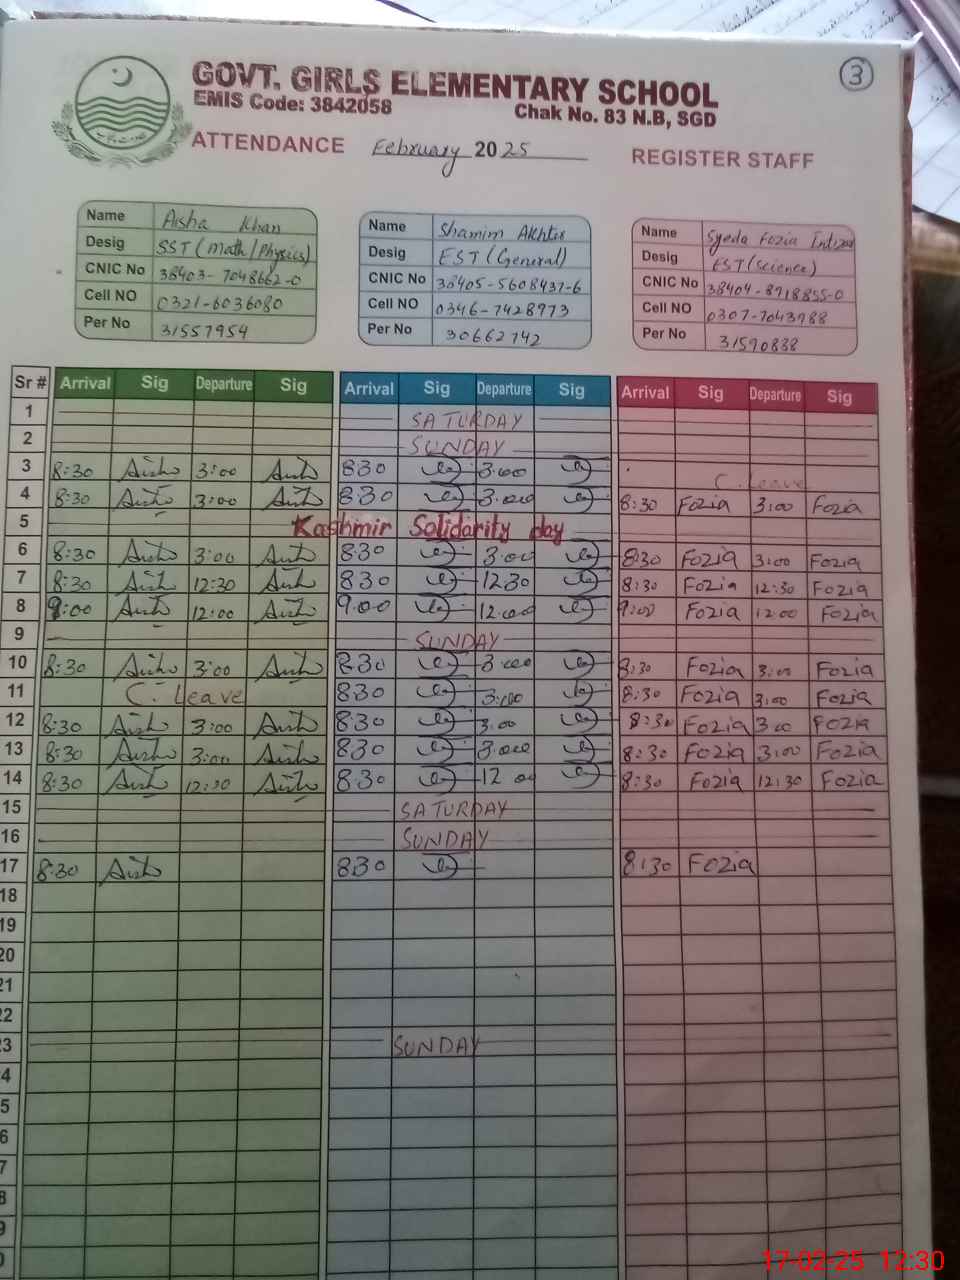 3
GOVT. GIRLS ELEMENTARY SCHOOL
EMIS Code: 3842058 Chak No. 83 N.B, SGD
ATTENDANCE February 2025 REGISTER STAFF
Name Aisha Khan
Desig SST (Math/Physics)
CNIC No 38403-7048662-0
Cell NO 0321-6036080
Per No 31557954
Name Shamim Akhtar
Desig EST (General)
CNIC No 38405-5608437-6
Cell NO 0346-7428973
Per No 30662742
Name Syeda Fozia
Desig EST (Science)
CNIC No 38404-8918855-0
Cell NO 0307-7043988
Per No 31590838
Sr # Arrival Sig Departure Sig Arrival Sig Departure Sig Arrival Sig Departure Sig
1 SATURDAY
2 SUNDAY
3 8:30 3:00 830 3:00 C. Leave
4 8:30 3:00 830 3:00 8:30 Fozia 3:00 Fozia
5 Kashmir Solidarity day
6 8:30 3:00 830 3:00 8:30 Fozia 3:00 Fozia
7 8:30 12:30 830 1230 8:30 Fozia 12:30 Fozia
8 9:00 12:00 9.00 12:00 9:00 Fozia 12:00 Fozia
9 SUNDAY
10 8:30 3:00 830 3:00 8:30 Fozia 3:00 Fozia
11 C. Leave 830 3:00 8:30 Fozia 3:00 Fozia
12 8:30 3:00 830 3.00 8:30 Fozia 3:00 Fozia
13 8:30 3:00 830 3:00 8:30 Fozia 3:00 Fozia
14 8:30 12:30 8.30 12 00 8:30 Fozia 12:30 Fozia
15 SATURDAY
16 SUNDAY
17 8:30 830 8:30 Fozia
18
19
20
21
22
23 SUNDAY
4
5
6
7
8
9
0
17-02-25 12:30